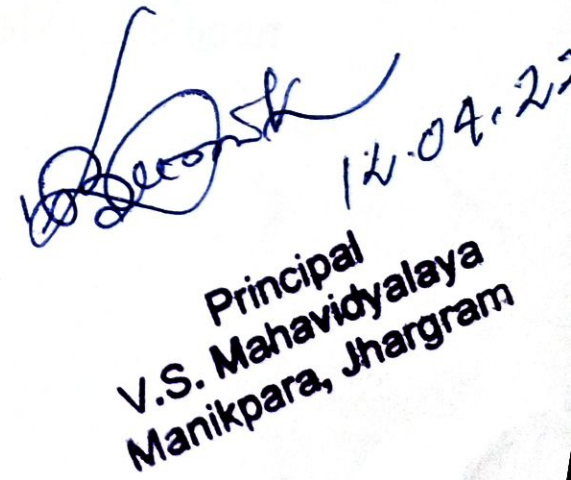 12.04.22
Principal
V.S. Mahavidyalaya
Manikpara, Jhargram